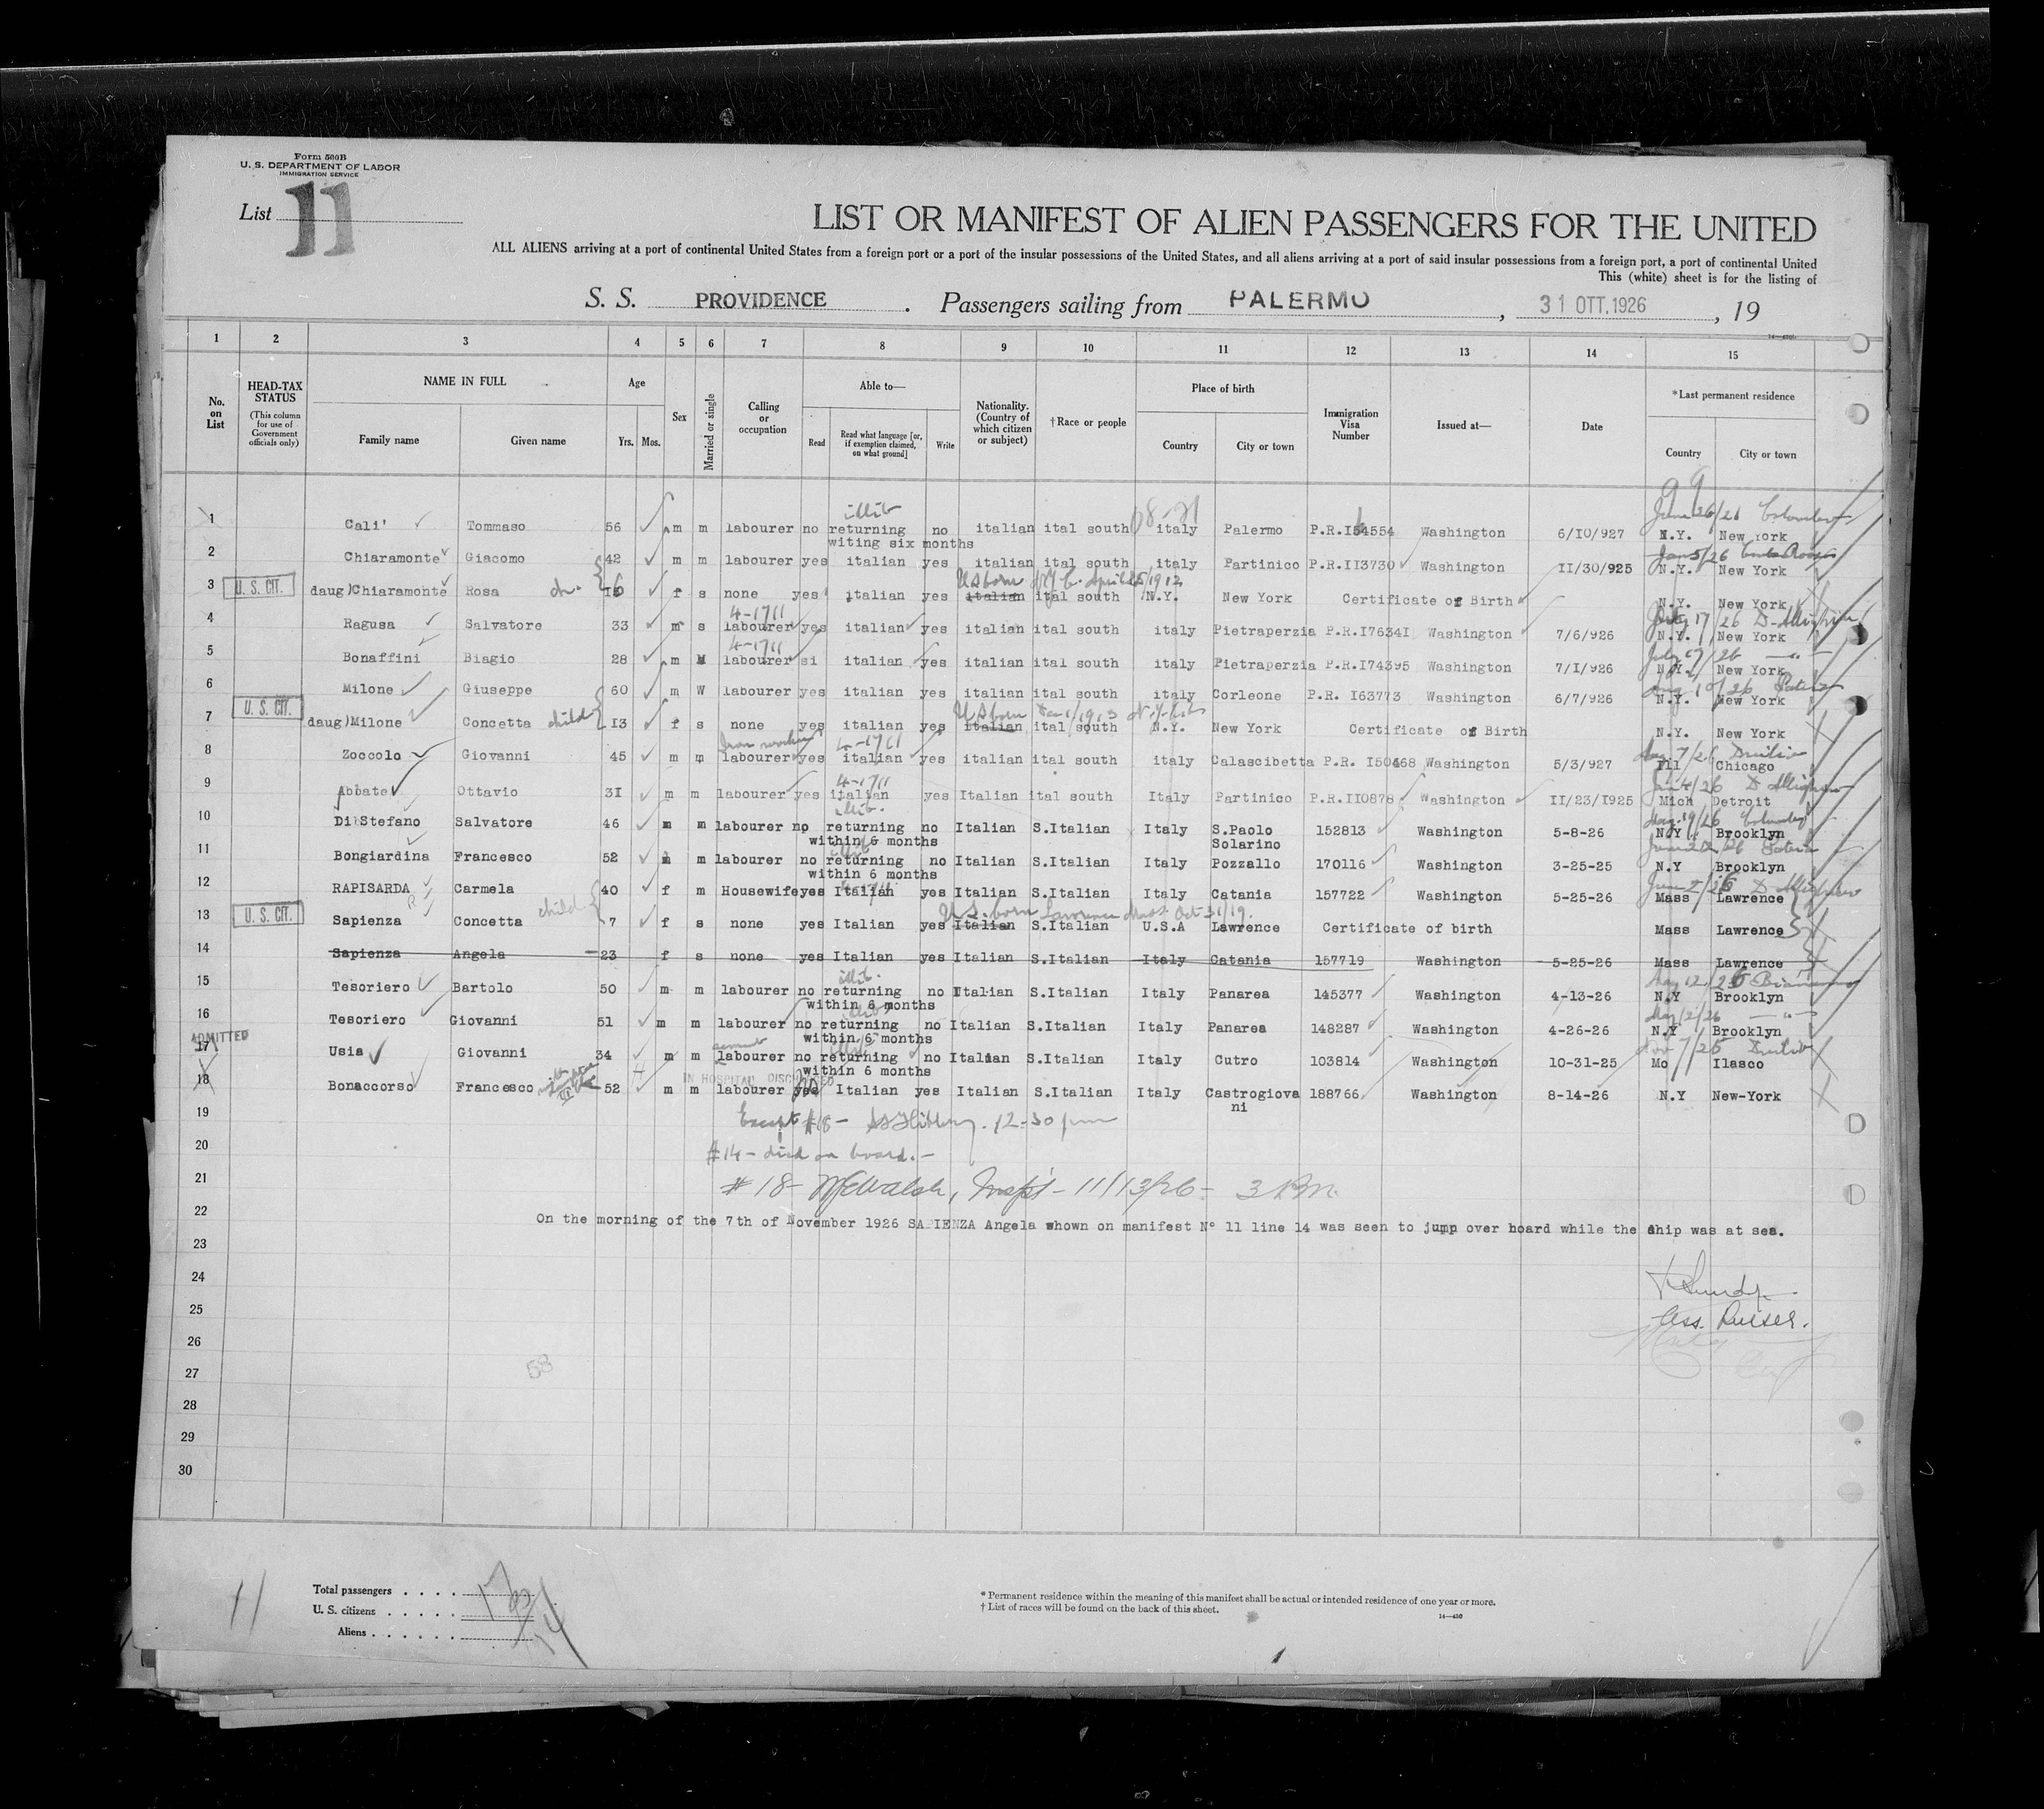 Form 500B
U. S. DEPARTMENT OF LABOR
IMMIGRATION SERVICE
List 11
LIST OR MANIFEST OF ALIEN PASSENGERS FOR THE UNITED
ALL ALIENS arriving at a port of continental United States from a foreign port or a port of the insular possessions of the United States, and all aliens arriving at a port of said insular possessions from a foreign port, a port of continental United
This (white) sheet is for the listing of
S. S. PROVIDENCE. Passengers sailing from PALERMO, 31 OTT.1926, 19
1 2 3 4 5 6 7 8 9 10 11 12 13 14 15
No. on List
HEAD-TAX STATUS (This column for use of Government officials only)
NAME IN FULL Family name Given name
Age Yrs. Mos.
Sex
Married or single
Calling or occupation
Able to— Read Read what language [or, if exemption claimed, on what ground] Write
Nationality. (Country of which citizen or subject)
†Race or people
Place of birth Country City or town
Immigration Visa Number
Issued at—
Date
*Last permanent residence Country City or town
illit
1 Cali' Tommaso 56 m m labourer no returning no italian ital south italy Palermo P.R.I54554 Washington 6/10/927 N.Y. New York
witing six months
2 Chiaramonte Giacomo 42 m m labourer yes italian yes italian ital south italy Partinico P.R.II3730 Washington II/30/925 N.Y. New York
3 U. S. CIT. daug)Chiaramonte Rosa f s none yes italian yes italian ital south N.Y. New York Certificate of Birth N.Y. New York
4-1711
4 Ragusa Salvatore 33 m s labourer yes italian yes italian ital south italy Pietraperzia P.R.I7634I Washington 7/6/926 N.Y. New York
4-1711
5 Bonaffini Biagio 28 m M labourer si italian yes italian ital south italy Pietraperzia P.R.I74395 Washington 7/I/926 N.Y. New York
6 Milone Giuseppe 60 m W labourer yes italian yes italian ital south italy Corleone P.R. I63773 Washington 6/7/926 N.Y. New York
7 U. S. CIT. daug)Milone Concetta child I3 f s none yes italian yes italian ital south N.Y. New York Certificate of Birth N.Y. New York
8 Zoccolo Giovanni 45 m m labourer yes italian yes italian ital south italy Calascibetta P.R. I50468 Washington 5/3/927 Ill Chicago
4-1711
9 Abbate Ottavio 3I m m labourer yes italian yes Italian ital south Italy Partinico P.R.II0878 Washington II/23/I925 Mich Detroit
illit.
10 Di Stefano Salvatore 46 m m labourer no returning no Italian S.Italian Italy S.Paolo 152813 Washington 5-8-26 N.Y Brooklyn
within 6 months Solarino
11 Bongiardina Francesco 52 m m labourer no returning no Italian S.Italian Italy Pozzallo 170116 Washington 3-25-25 N.Y Brooklyn
within 6 months
12 RAPISARDA Carmela 40 f m Housewife yes Italian yes Italian S.Italian Italy Catania 157722 Washington 5-25-26 Mass Lawrence
U.S. born Lawrence Mass Oct 31/19.
13 U. S. CIT. Sapienza Concetta child 7 f s none yes Italian yes Italian S.Italian U.S.A Lawrence Certificate of birth Mass Lawrence
14 Sapienza Angela 23 f s none yes Italian yes Italian S.Italian Italy Catania 157719 Washington 5-25-26 Mass Lawrence
illit.
15 Tesoriero Bartolo 50 m m labourer no returning no Italian S.Italian Italy Panarea 145377 Washington 4-13-26 N.Y Brooklyn
within 6 months
16 Tesoriero Giovanni 51 m m labourer no returning no Italian S.Italian Italy Panarea 148287 Washington 4-26-26 N.Y Brooklyn
within 6 months
ADMITTED
17 Usia Giovanni 34 m m labourer no returning no Italian S.Italian Italy Cutro 103814 Washington 10-31-25 Mo Ilasco
within 6 months
IN HOSPITAL DISCHARGED
18 Bonaccorso Francesco 52 m m labourer yes Italian yes Italian S.Italian Italy Castrogiova 188766 Washington 8-14-26 N.Y New-York
ni
19 Except #18 - 12-30 pm
20 #14 - died on board.-
21 #18- McWalsh, Inspt - 11/13/26 - 3 P.M.
22 On the morning of the 7th of November 1926 SAPIENZA Angela shown on manifest N° 11 line 14 was seen to jump over board while the ship was at sea.
23
24
25 Ass. Purser.
26
27 58
28
29
30
11
Total passengers . . . . 17
U. S. citizens . . . . . 3
Aliens . . . . . . 14
* Permanent residence within the meaning of this manifest shall be actual or intended residence of one year or more.
† List of races will be found on the back of this sheet.
14—430